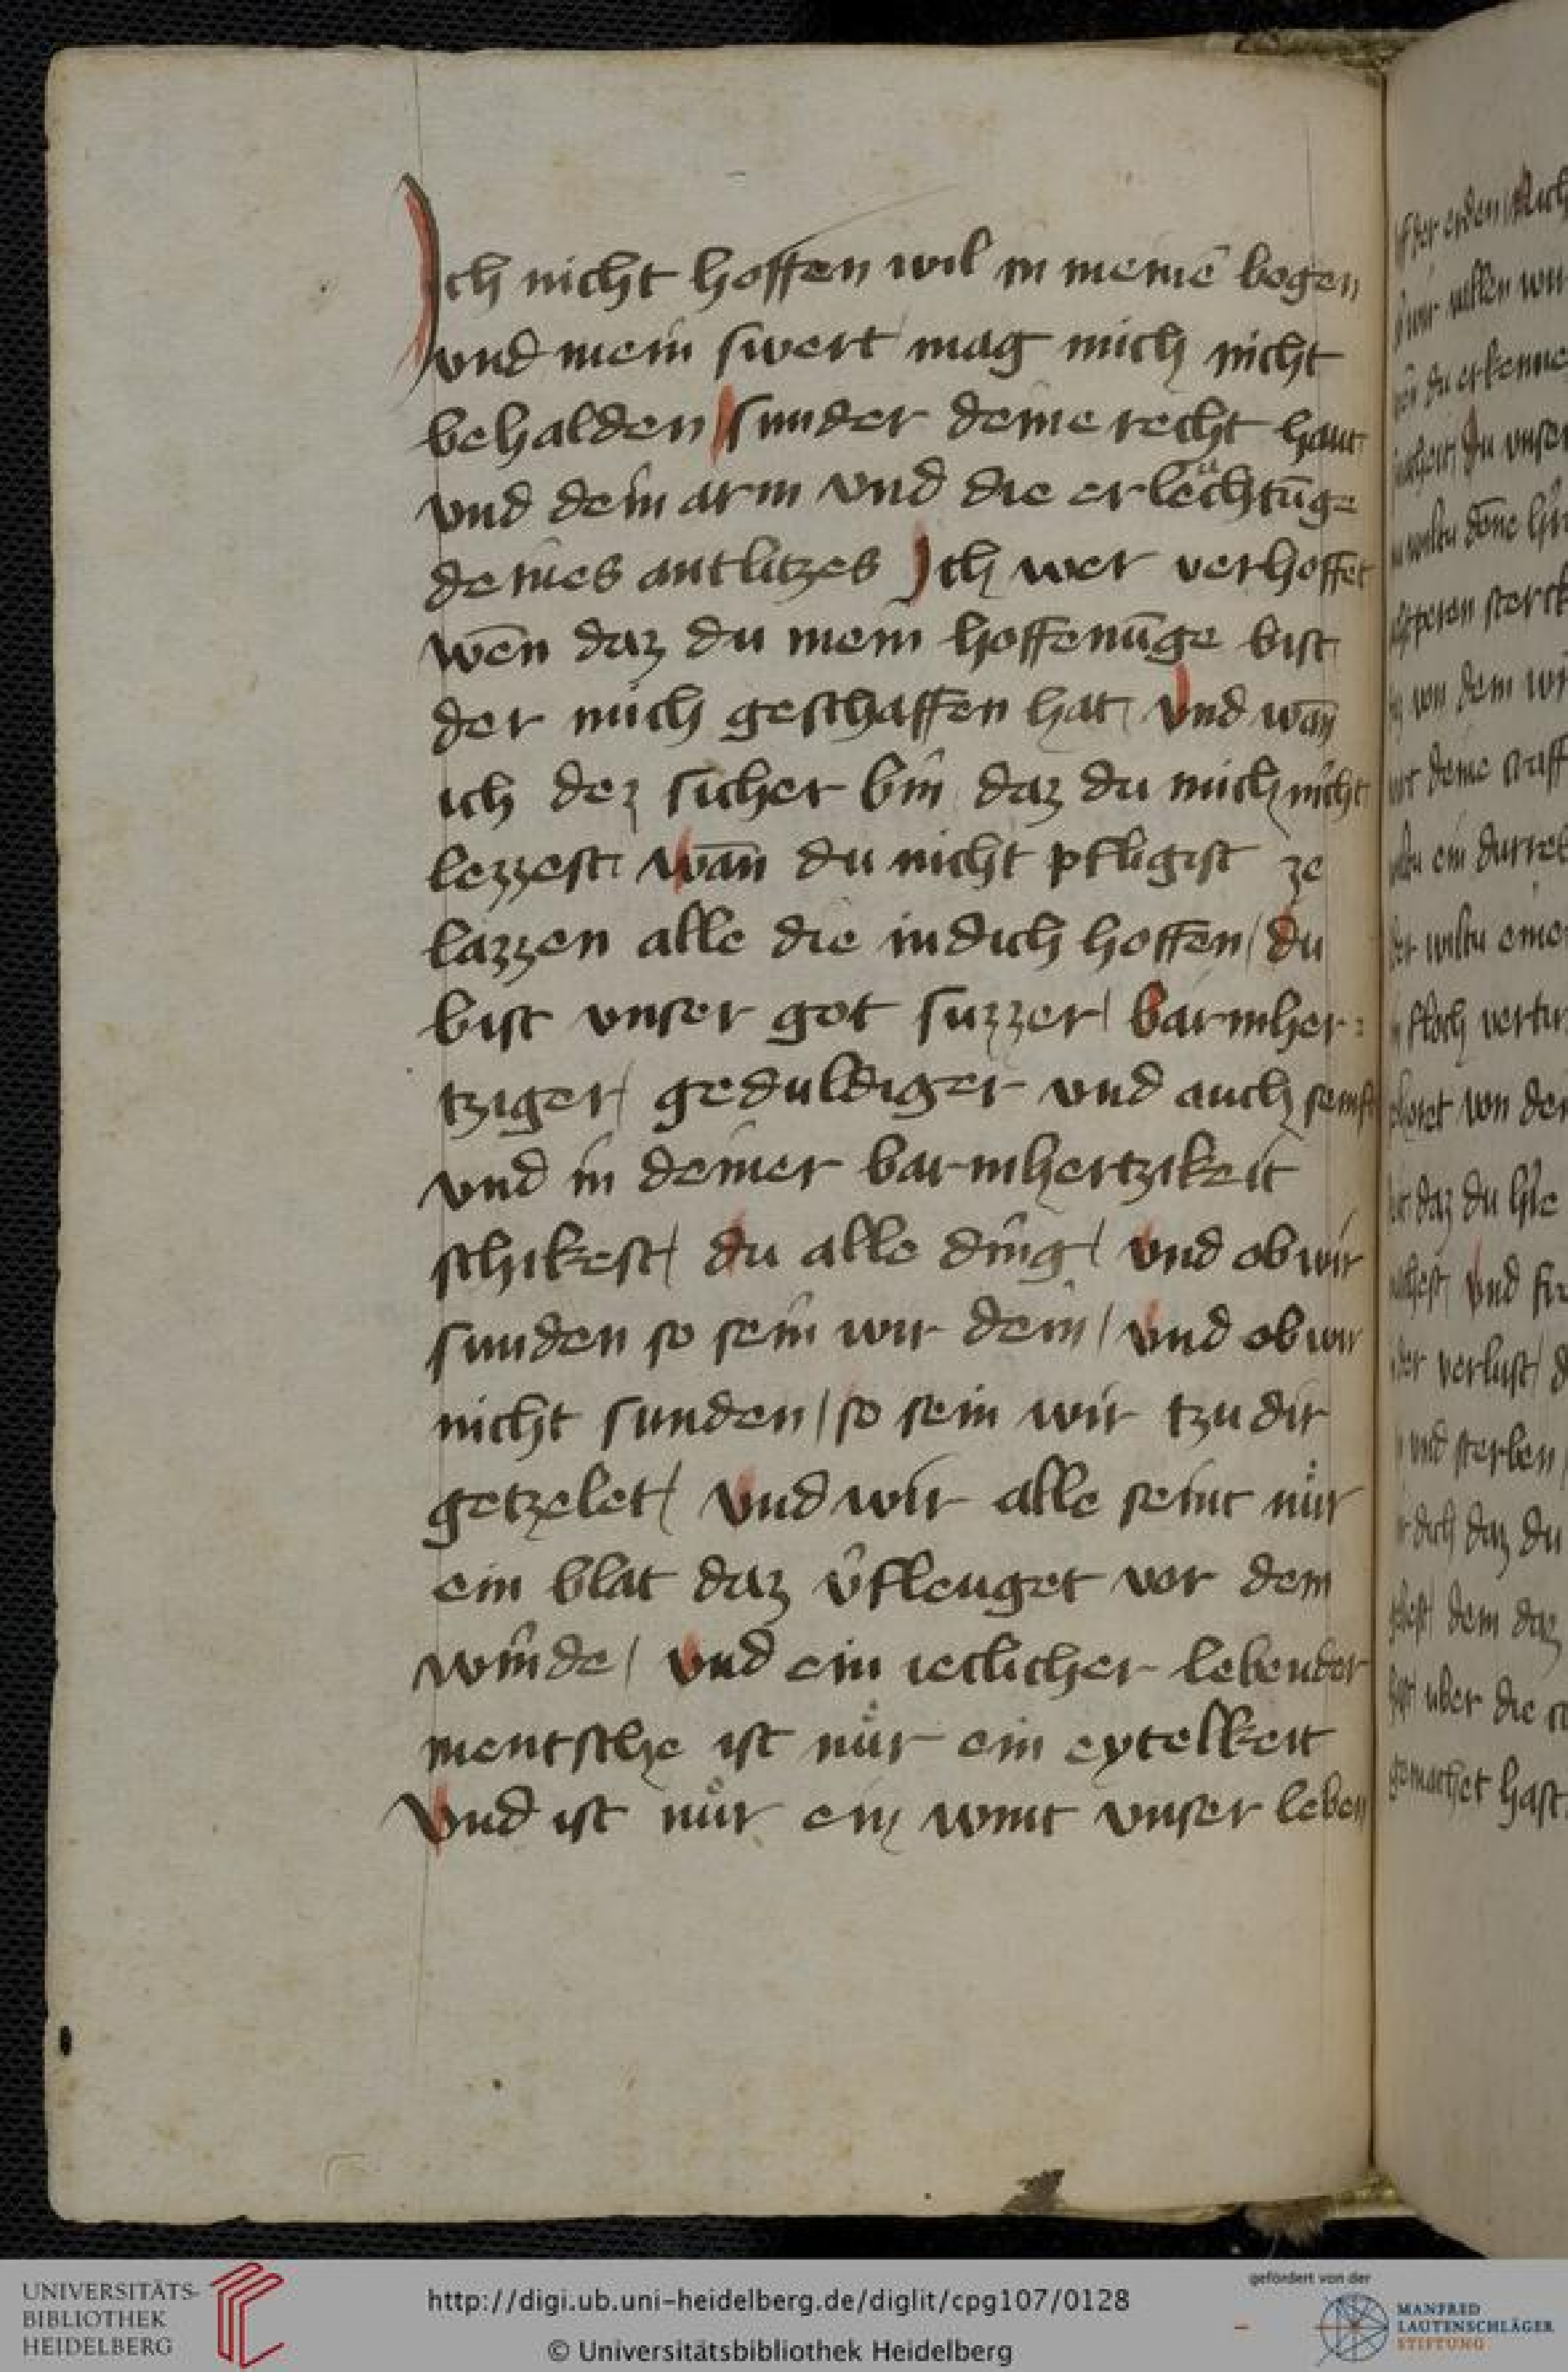 Ich nicht hoffen wil in meinē bogen
vnd mein swert mag mich nicht
behalden sunder deine recht hant
vnd dein arm vnd die erlᵉuchtūge
deines antlitzes Ich wer verhoffet
wēn daz du mein hoffenūge bist
der mich geschaffen hat vnd wān
ich dez sicher bin daz du mich nicht
lezzest wān du nicht pfligist ze
lazzen alle die in dich hoffen / du
bist vnser got suzzer / barmher:
tziger / geduldiger vnd auch senft
vnd in deiner barmhertzikeit
schikest / du alle ding / vnd ob wir
sunden so sein wir dein / vnd ob wir
nicht sunden / so sein wir tzu dir
getzelet / vnd wir alle seint nůr
ein blat daz v̂fleuget vor dem
winde / vnd ein ieclicher lebender
mentsche ist nůr ein eytelkeit
Vnd ist nůr ein wint vnser leben
UNIVERSITÄTS-
BIBLIOTHEK
HEIDELBERG
http://digi.ub.uni-heidelberg.de/diglit/cpg107/0128
© Universitätsbibliothek Heidelberg
gefördert von der
MANFRED
LAUTENSCHLÄGER
STIFTUNG